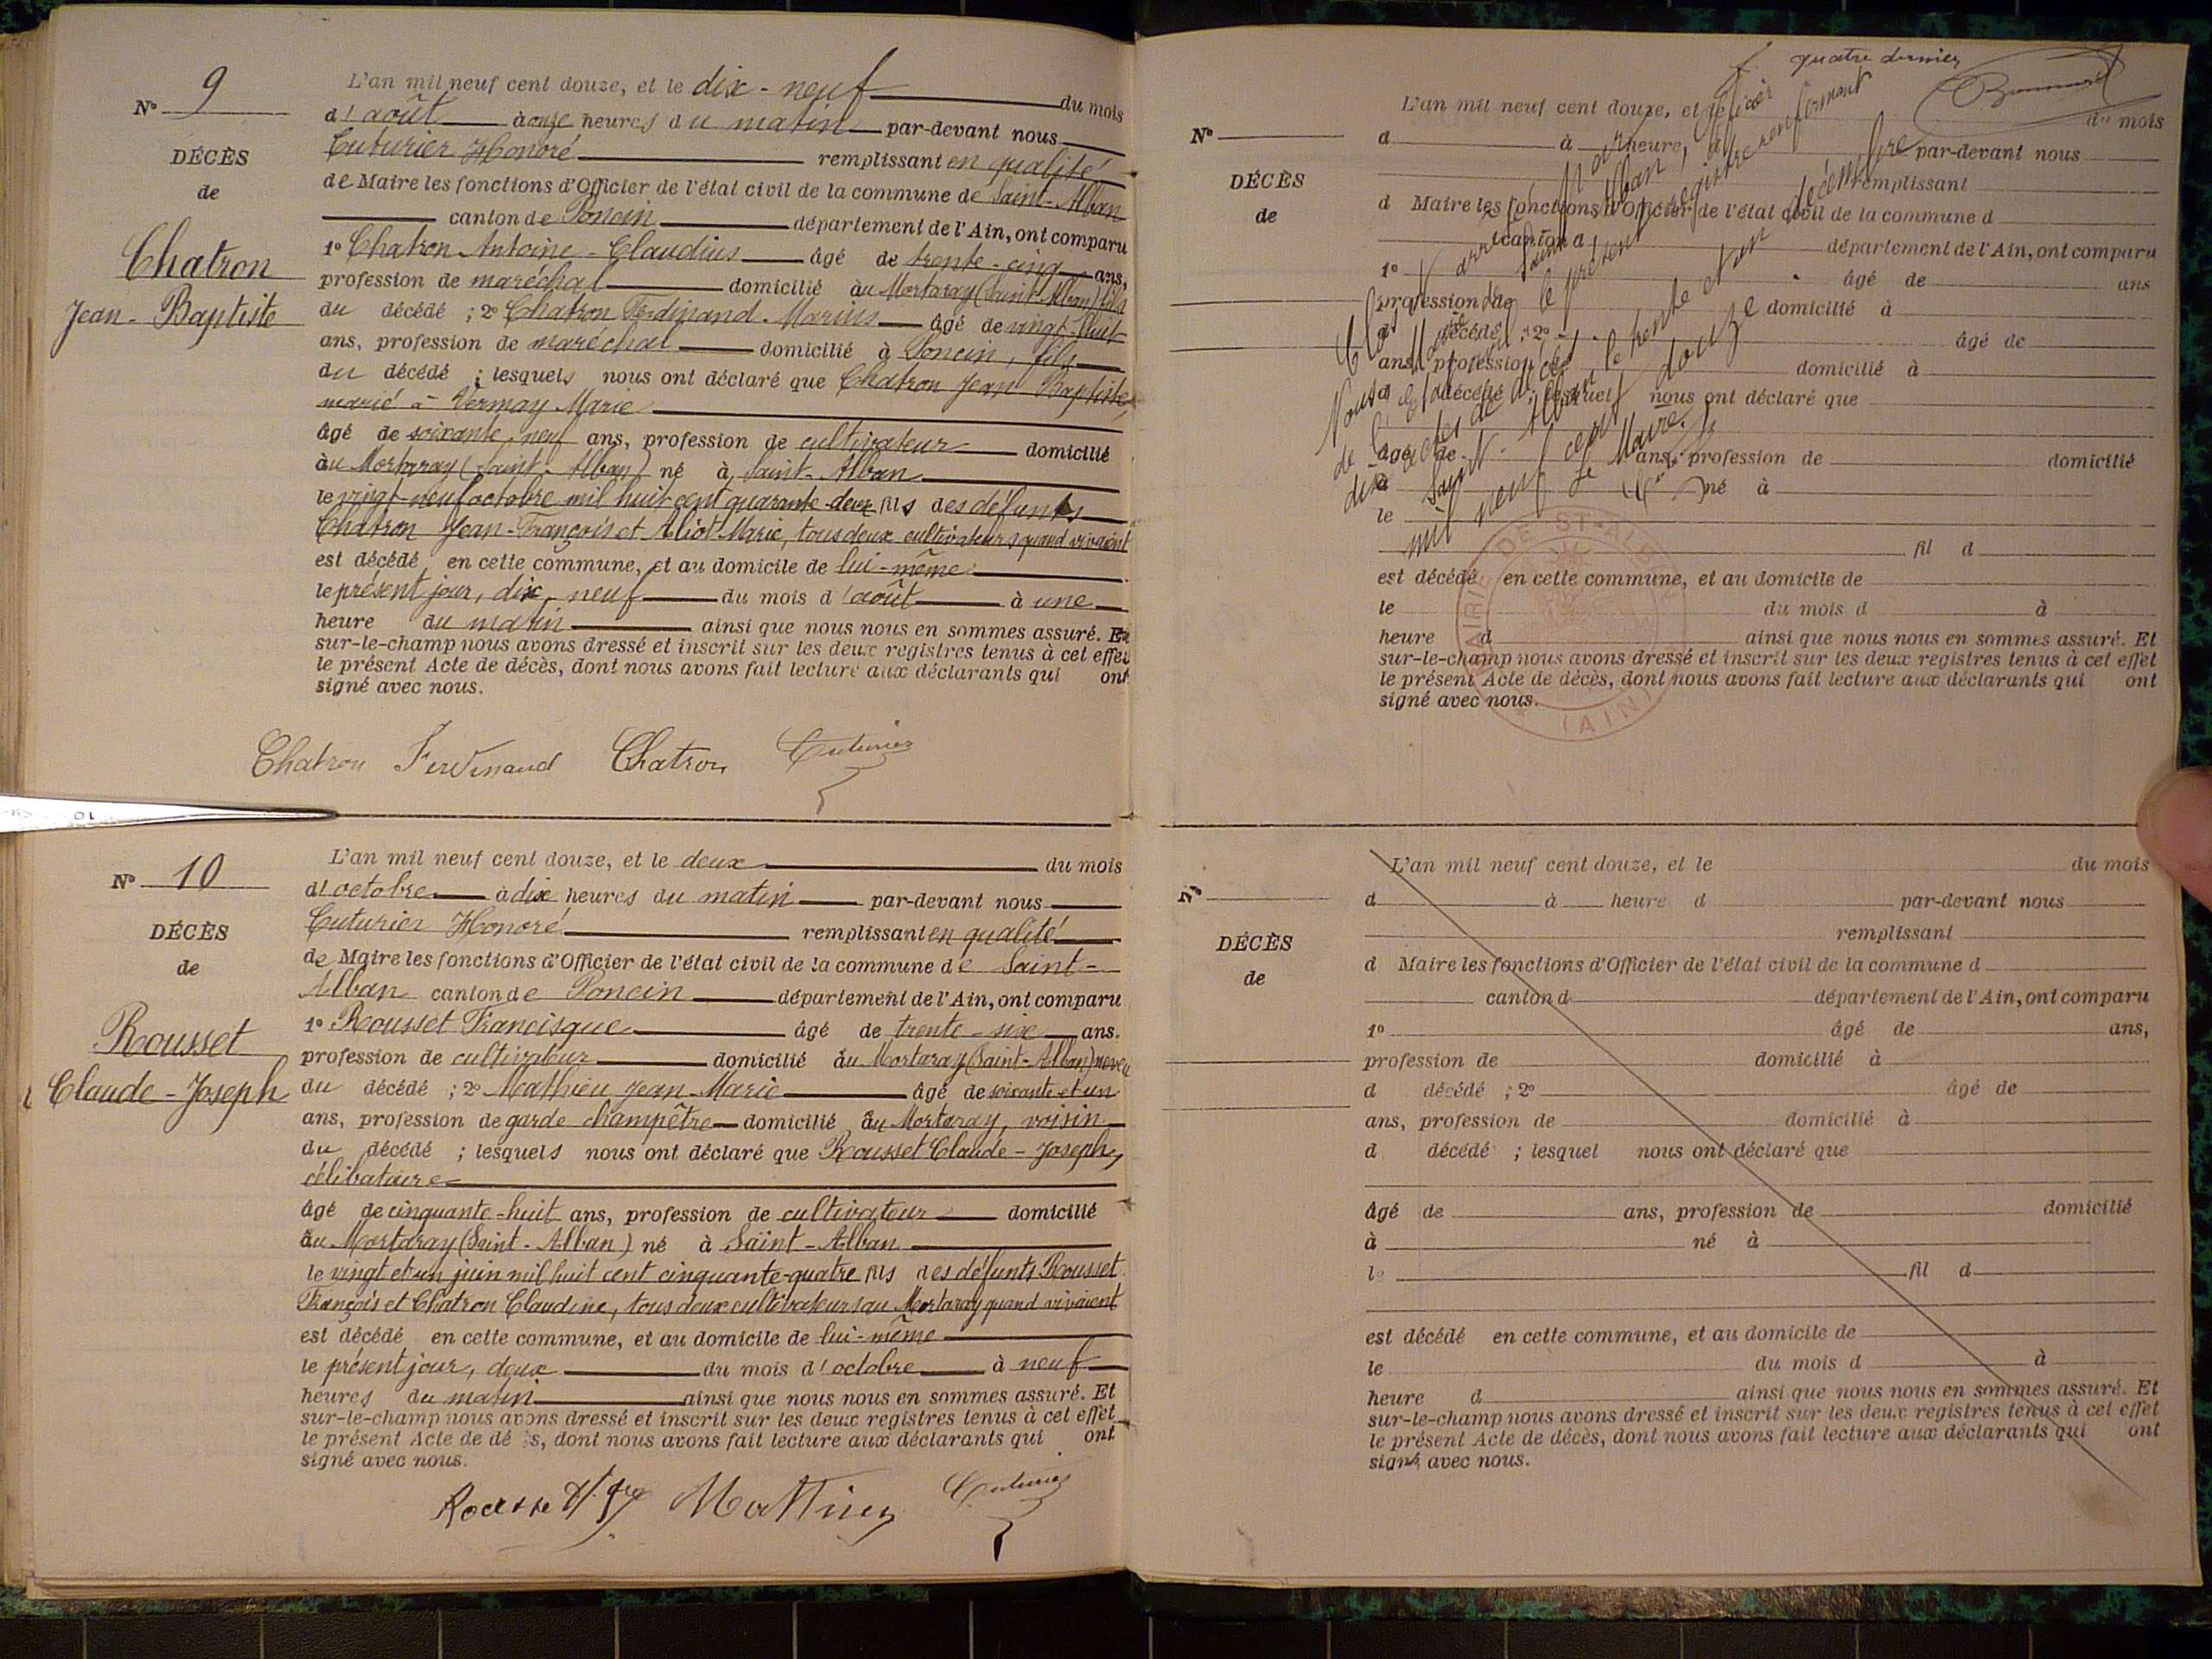 N° 9
DÉCÈS
de
Chatron
Jean-Baptiste
L'an mil neuf cent douze, et le dix-neuf du mois
d'août à onze heures du matin par-devant nous
Cuturier Honoré remplissant en qualité
de Maire les fonctions d'Officier de l'état civil de la commune de Saint-Alban
canton de Poncin département de l'Ain, ont comparu
1° Chatron Antoine-Claudius âgé de trente-cinq ans,
profession de maréchal domicilié au Mortaray (Saint-Alban) fils
du décédé ; 2° Chatron Ferdinand-Marius âgé de vingt-huit
ans, profession de maréchal domicilié à Poncin, fils
du décédé ; lesquels nous ont déclaré que Chatron Jean Baptiste,
marié à Vermay Marie
âgé de soixante-neuf ans, profession de cultivateur domicilié
au Mortaray (Saint-Alban) né à Saint-Alban
le vingt-neuf octobre mil huit cent quarante-deux fils des défunts
Chatron Jean-François et Aliot Marie, tous deux cultivateurs quand vivaient
est décédé en cette commune, et au domicile de lui-même
le présent jour, dix-neuf du mois d'août à une
heure du matin ainsi que nous nous en sommes assuré. Et
sur-le-champ nous avons dressé et inscrit sur les deux registres tenus à cet effet
le présent Acte de décès, dont nous avons fait lecture aux déclarants qui ont
signé avec nous.
Chatron Ferdinand Chatron Cuturier
N° 10
DÉCÈS
de
Rousset
Claude-Joseph
L'an mil neuf cent douze, et le deux du mois
d'octobre à dix heures du matin par-devant nous
Cuturier Honoré remplissant en qualité
de Maire les fonctions d'Officier de l'état civil de la commune de Saint-
Alban canton de Poncin département de l'Ain, ont comparu
1° Rousset Francisque âgé de trente-six ans.
profession de cultivateur domicilié au Mortaray (Saint-Alban) neveu
du décédé ; 2° Mathieu Jean-Marie âgé de soixante et un
ans, profession de garde champêtre domicilié au Mortaray, voisin
du décédé ; lesquels nous ont déclaré que Rousset Claude-Joseph,
célibataire
âgé de cinquante-huit ans, profession de cultivateur domicilié
au Mortaray (Saint-Alban) né à Saint-Alban
le vingt et un juin mil huit cent cinquante-quatre fils des défunts Rousset
François et Chatron Claudine, tous deux cultivateurs au Mortaray quand vivaient
est décédé en cette commune, et au domicile de lui-même
le présent jour, deux du mois d'octobre à neuf
heures du matin ainsi que nous nous en sommes assuré. Et
sur-le-champ nous avons dressé et inscrit sur les deux registres tenus à cet effet
le présent Acte de dé s, dont nous avons fait lecture aux déclarants qui ont
signé avec nous.
Rousset Mathieu Cuturier
quatre dernier
N°
DÉCÈS
de
L'an mil neuf cent douze, et le du mois
d à heure, d par-devant nous
remplissant
d Maire les fonctions d'Officier de l'état civil de la commune d
canton d département de l'Ain, ont comparu
1° âgé de ans
profession de domicilié à
d décédé ; 2° âgé de
ans, profession de domicilié à
d décédé ; lesquel nous ont déclaré que
âgé de ans, profession de domicilié
à né à
le
fil d
est décédé en cette commune, et au domicile de
le du mois d à
heure d ainsi que nous nous en sommes assuré. Et
sur-le-champ nous avons dressé et inscrit sur les deux registres tenus à cet effet
le présent Acte de décès, dont nous avons fait lecture aux déclarants qui ont
signé avec nous.
Clos
Nous, Maire
de Saint-Alban, officier
de l'état civil le présent registre renfermant
dix actes de décès
Saint-Alban, le trente et un décembre
mil neuf cent douze
Le Maire,
MAIRIE DE ST-ALBAN
(AIN)
N°
DÉCÈS
de
L'an mil neuf cent douze, et le du mois
d à heure d par-devant nous
remplissant
d Maire les fonctions d'Officier de l'état civil de la commune d
canton d département de l'Ain, ont comparu
1° âgé de ans,
profession de domicilié à
d décédé ; 2° âgé de
ans, profession de domicilié à
d décédé ; lesquel nous ont déclaré que
âgé de ans, profession de domicilié
à né à
le fil d
est décédé en cette commune, et au domicile de
le du mois d à
heure d ainsi que nous nous en sommes assuré. Et
sur-le-champ nous avons dressé et inscrit sur les deux registres tenus à cet effet
le présent Acte de décès, dont nous avons fait lecture aux déclarants qui ont
signé avec nous.